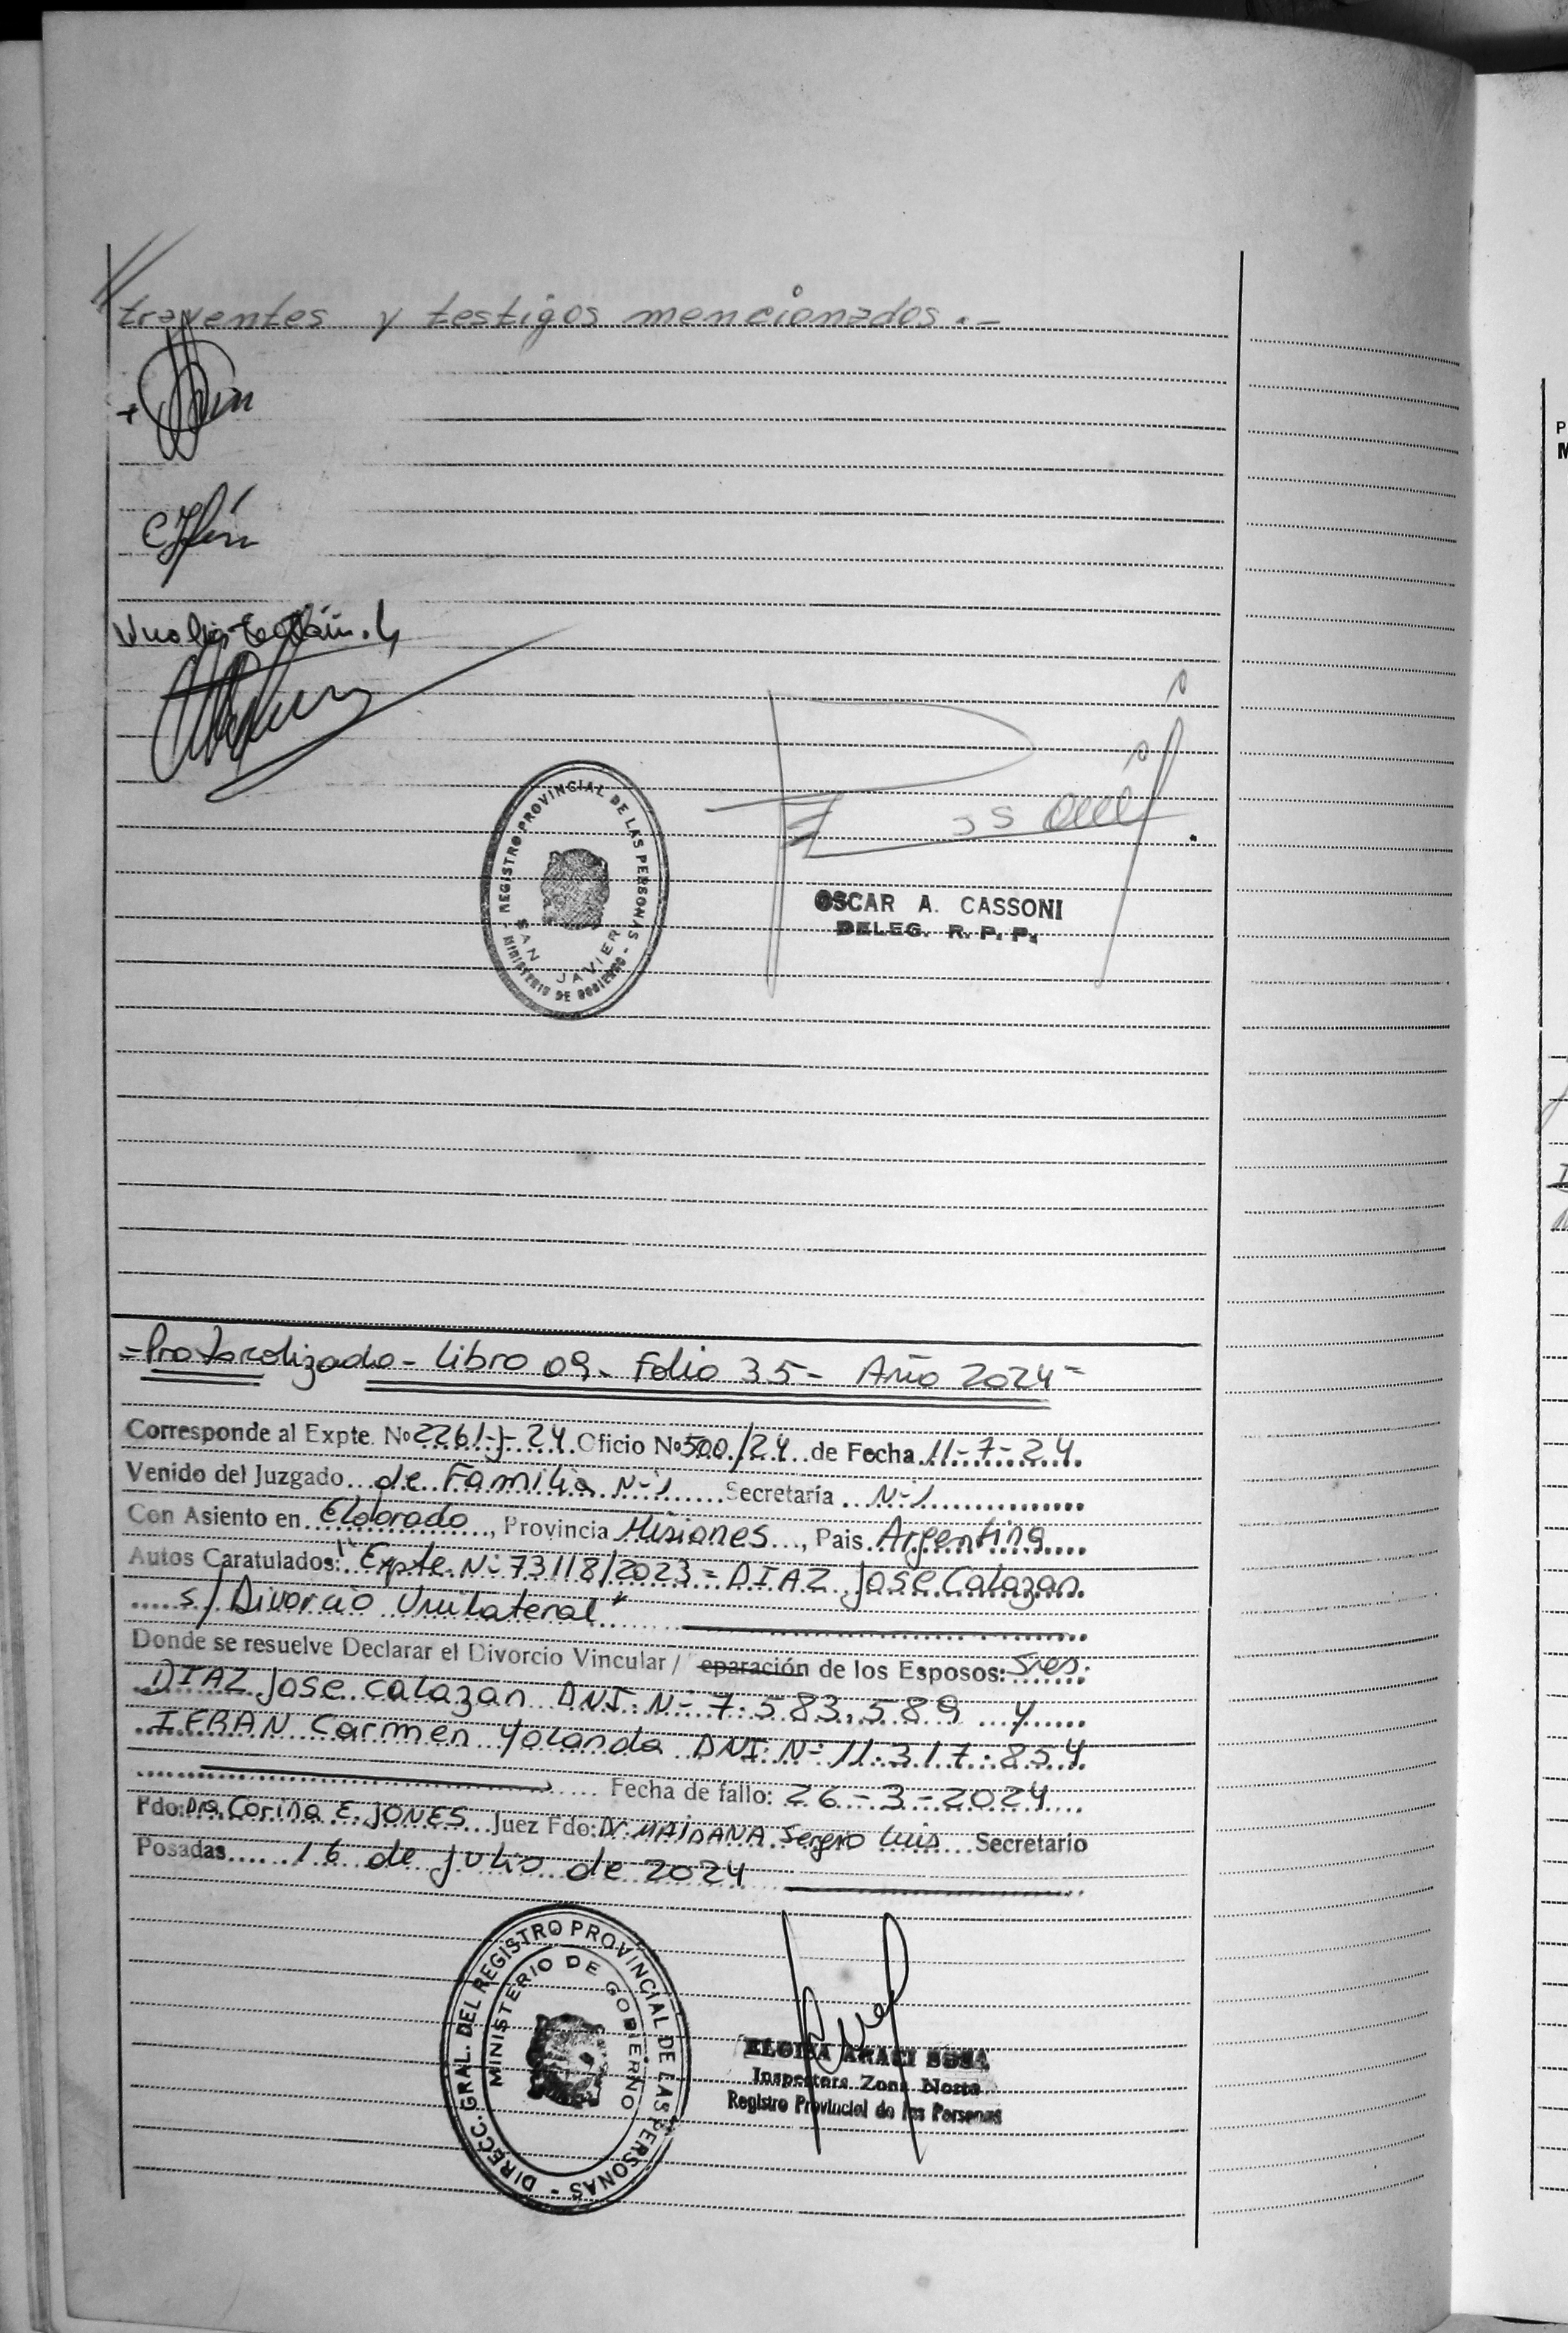 trayentes y testigos mencionados.-
REGISTRO PROVINCIAL DE LAS PERSONAS
SAN JAVIER
- MINISTERIO DE GOBIERNO -
OSCAR A. CASSONI
DELEG. R. P. P.
=Protocolizado- Libro 09- Folio 35- Año 2024=
Corresponde al Expte. Nº 2261-J-24 Oficio Nº 500/24 de Fecha 11-7-24
Venido del Juzgado de Familia Nº1 Secretaría Nº1
Con Asiento en Eldorado, Provincia Misiones, Pais Argentina
Autos Caratulados: "Expte. Nº 73118/2023= DIAZ Jose Calazan
s/ Divorcio Unilateral"
Donde se resuelve Declarar el Divorcio Vincular / eparación de los Esposos: Sres.
DIAZ Jose Calazan DNI. Nº 7.583.589 y
IFRAN Carmen Yolanda DNI. Nº 11.317.854
Fecha de fallo: 26-3-2024
Fdo: Dra Corina E. JONES Juez Fdo: Dr MAIDANA Sergio Luis Secretario
Posadas 16 de julio de 2024
DIRECC. GRAL. DEL REGISTRO PROVINCIAL DE LAS PERSONAS -
MINISTERIO DE GOBIERNO
ELOISA ARACI SOSA
Inspectora Zona Norte
Registro Provincial de las Personas
P
M